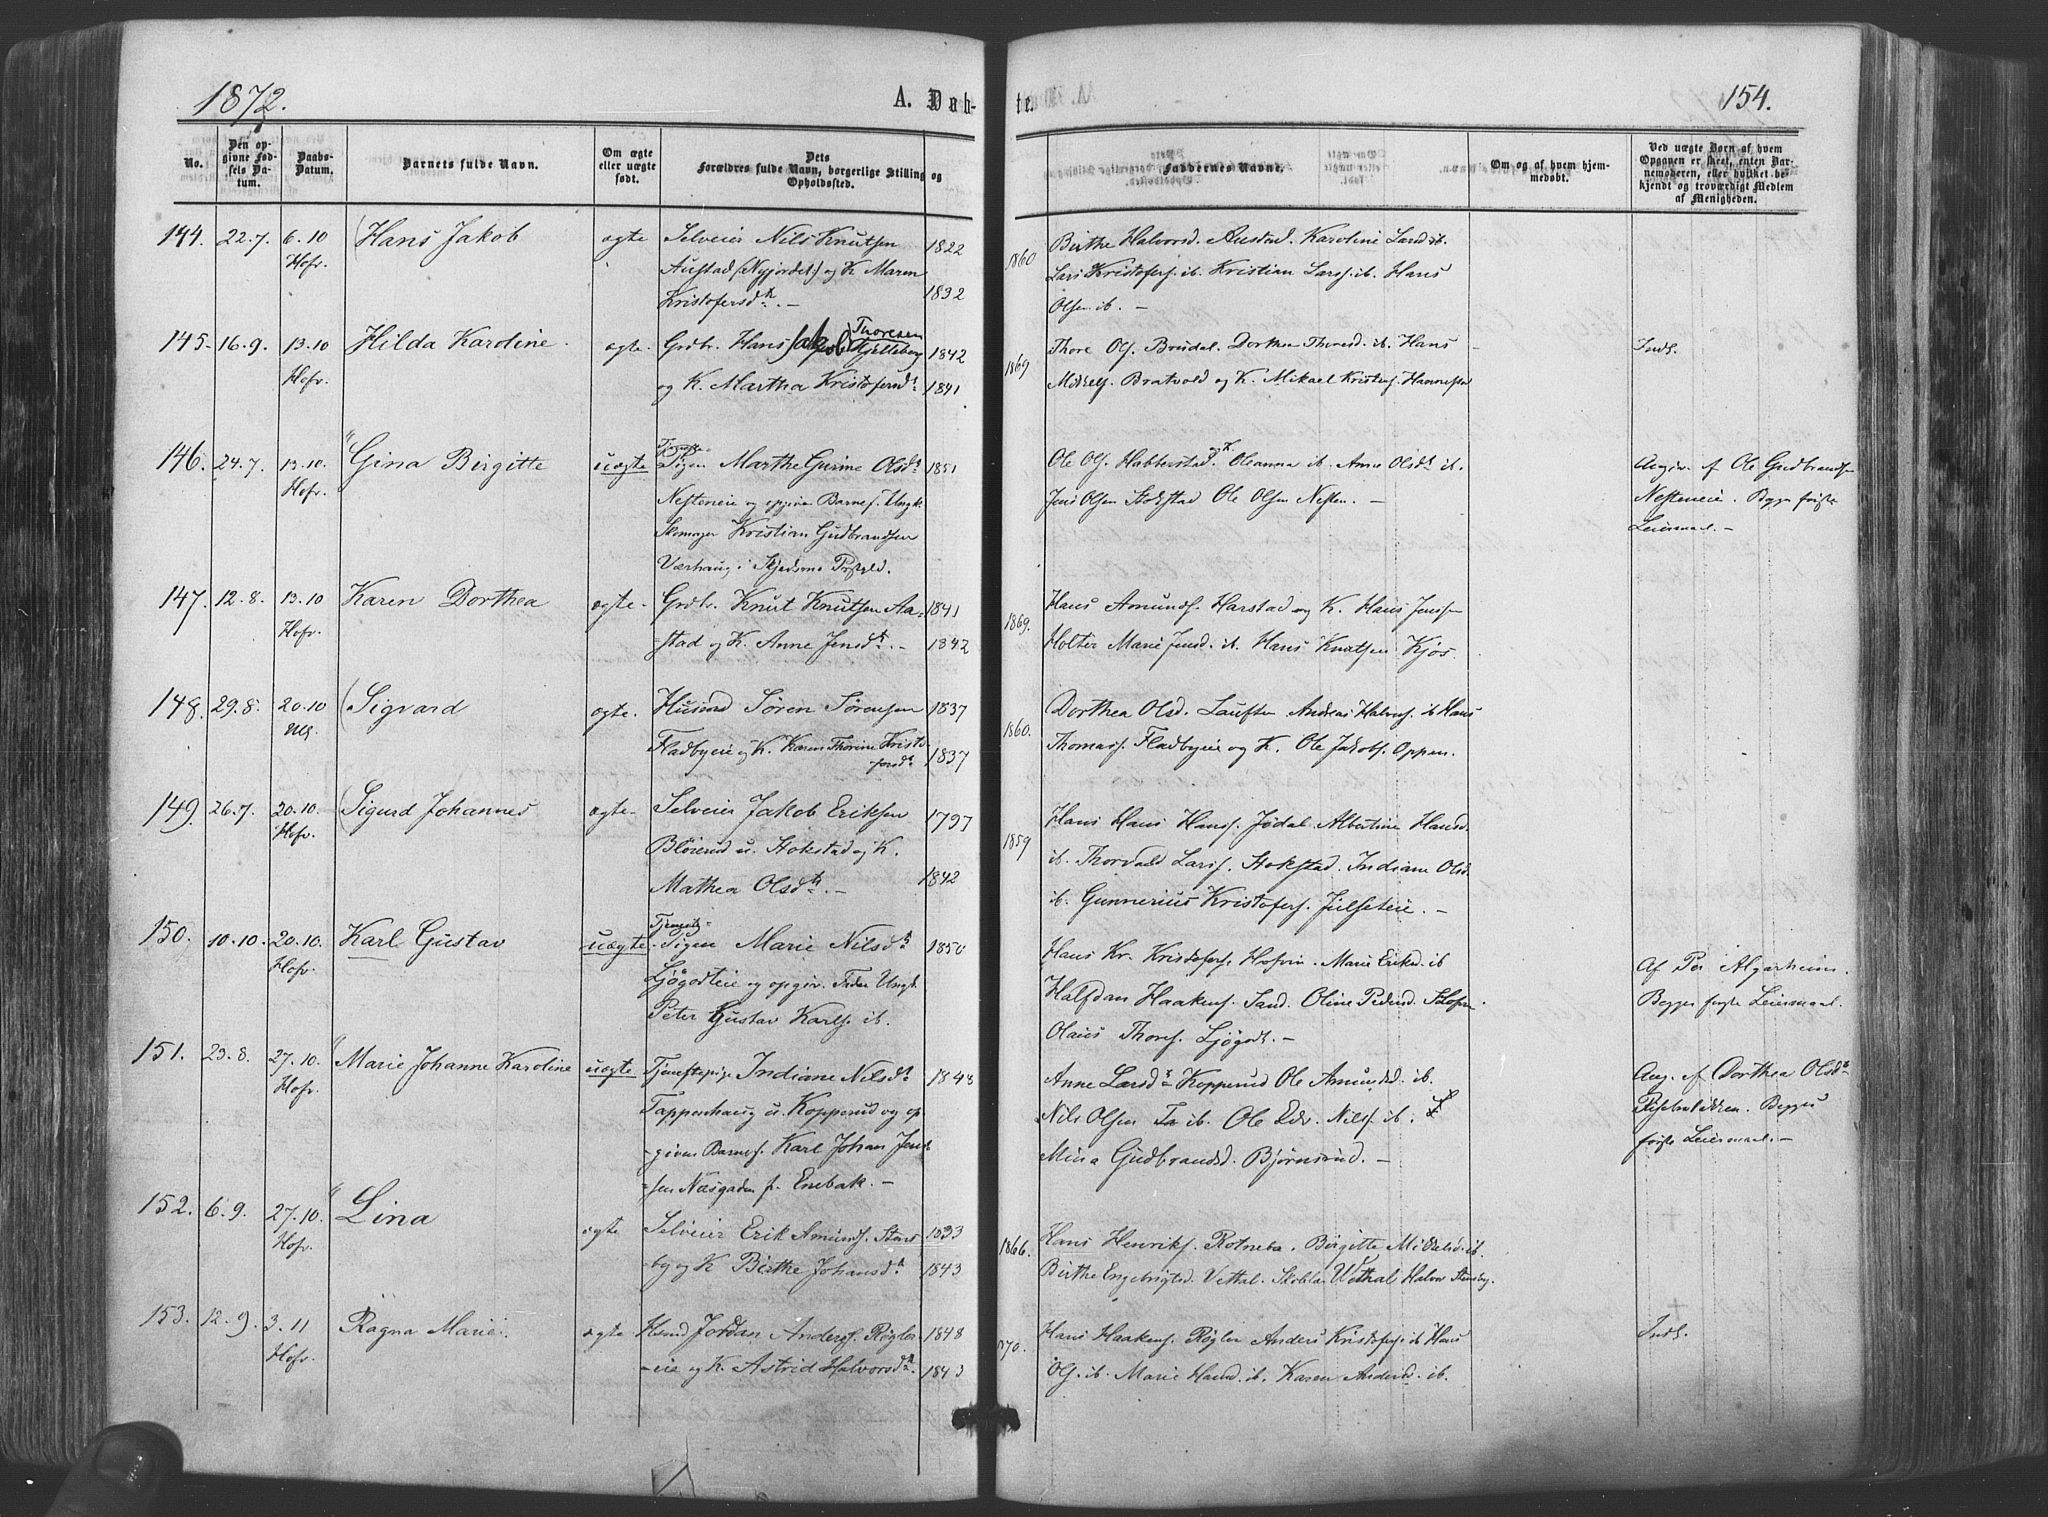 1872.
A. Døb-
te.
154.
No.
Den op-
givne Fød-
sels Da-
tum.
Daabs-
Datum.
Barnets fulde Navn.
Om ægte
eller uægte
født.
Dets
Forældres fulde Navn, borgerlige Stilling og
Opholdssted.
Faddernes Navne.
Om og af hvem hjem-
medøbt.
Ved uægte Børn af hvem
Opgaven er skeet, enten Bar-
nemoderen, eller hvilket be-
kjendt og troværdigt Medlem
af Menigheden.
144. 22.7. 6.10 Hans Jakob ægte Selveier Nils Knutsen 1822
Hofv. Austad (Nyjordet) og K. Maren
Kristofersdtr. - 1832
1860 Birthe Halvorsd. Austad. Karoline Larsd ib.
Lars Kristofers. ib. Kristian Larss. ib. Hans
Olsen ib. -
145. 16.9. 13.10 Hilda Karoline ægte Grdbr. Hans Jakob Thoresen Kjelleberg 1842
Hofv. og K. Martha Kristofersdtr 1841
1869 Thore Ols. Brudal. Dorthea Thoresd. ib. Hans
Mikkels. Bratvold og K. Mikael Kristens.
Indl.
146. 24.7. 13.10. Gina Birgitte uægte Pigen Marthe Gurine Olsdtr 1851
Hofv. Nesteneie og opgiven Barnef. Ungk.
Skomager Kristian Gudbrandsen
Værhaug i Skjedsmo Prstgld.
Ole Ols. Habberstad og K. Oleanna ib. Anne Olsdtr ib.
Jens Olsen Stokstad Ole Olsen Nesten. -
Angiv. af Ole Gudbrandsen
Nesteneie. Begges første
Leiermaal. -
147. 12.8. 13.10 Karen Dorthea ægte. Grdbr. Knut Knutsen Aa- 1841
Hofv. =stad og K. Anne Jensdtr. - 1842
1869. Hans Amunds. Harstad og K. Hans Jenssen
Holter Marie Jensd. ib. Hans Knutsen Kjos.
148. 29.8. 20.10 Sigvard ægte. Husmd Søren Sørensen 1837
Fladbyeie og K. Karen Thorine Kristo-
fersdtr 1837
1860. Dorthea Olsd. Lauften Andreas Halvors. ib Hans
Thomass. Fladbyeie og K. Ole Jakobs. Oppen.
149. 26.7. 20.10. Sigurd Johannes ægte. Selveier Jakob Eriksen 1797
Hofv. Blöirud u. Stokstad og K.
Mathea Olsdtr. - 1842
1859 Hans Hans Hanss. Jødal. Albertine Hansd.
ib. Thorvald Larss. Stokstad. Indiane Olsd.
ib. Gunnerius Kristofers. Julseteie. -
150. 10.10. 20.10. Karl Gustav uægte. Pigen Marie Nilsdtr 1850
Hofv. Ljøgodteie og opgiv. Fader Ungk.
Peter Gustav Karls. ib.
Hans Kr. Kristofers. Hofvin. Marie Eriksd. ib
Halfdan Haakens. Sand. Oline Pedersd.
Olaus Thores. Ljøgodt. -
Af Per Algarheim.
Begges første Leiermaal.
151. 23.8. 27.10. Marie Johanne Karoline uægte Tjenestepige Indiane Nilsdtr 1848
Hofv. Tappenhaug u. Kopperud og op-
=given Barnef. Karl Johan Jen-
=sen Næsgaden fr. Enebak. -
Anne Larsdtr Kopperud Ole Amundsd. ib.
Nils Olsen ib. Ole Edv. Nils. ib.
Mina Gudbrandsd. Bjørnsrud. -
Ang. af Dorthea Olsdtr
Begges
første Leiermaal. -
152. 6.9. 27.10. Lina ægte Selveier Erik Amunds. Stens- 1833
Hofv. =by og K Birthe Johansdtr 1843
1866. Hans Henriks. Rotneba. Birgitte Mikkelsd. ib.
Birthe Engebrigtsd. Vethal. Wethal Halvor Stensby.
153. 12.9. 3.11 Ragna Marie. ægte Husmd Jordan Anders. Røgler- 1848
Hofv. =eie og K. Astrid Halvorsdtr. 1843
1870. Hans Haakens. Røgler Anders Kristofers. ib Hans
Ols. ib. Marie Hansd. ib. Karen Andersd. ib.
Indl.